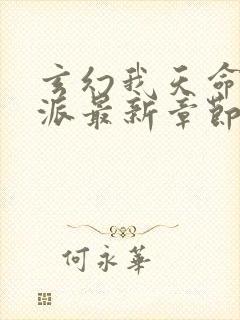 玄幻我天命
派最新章節
何永華